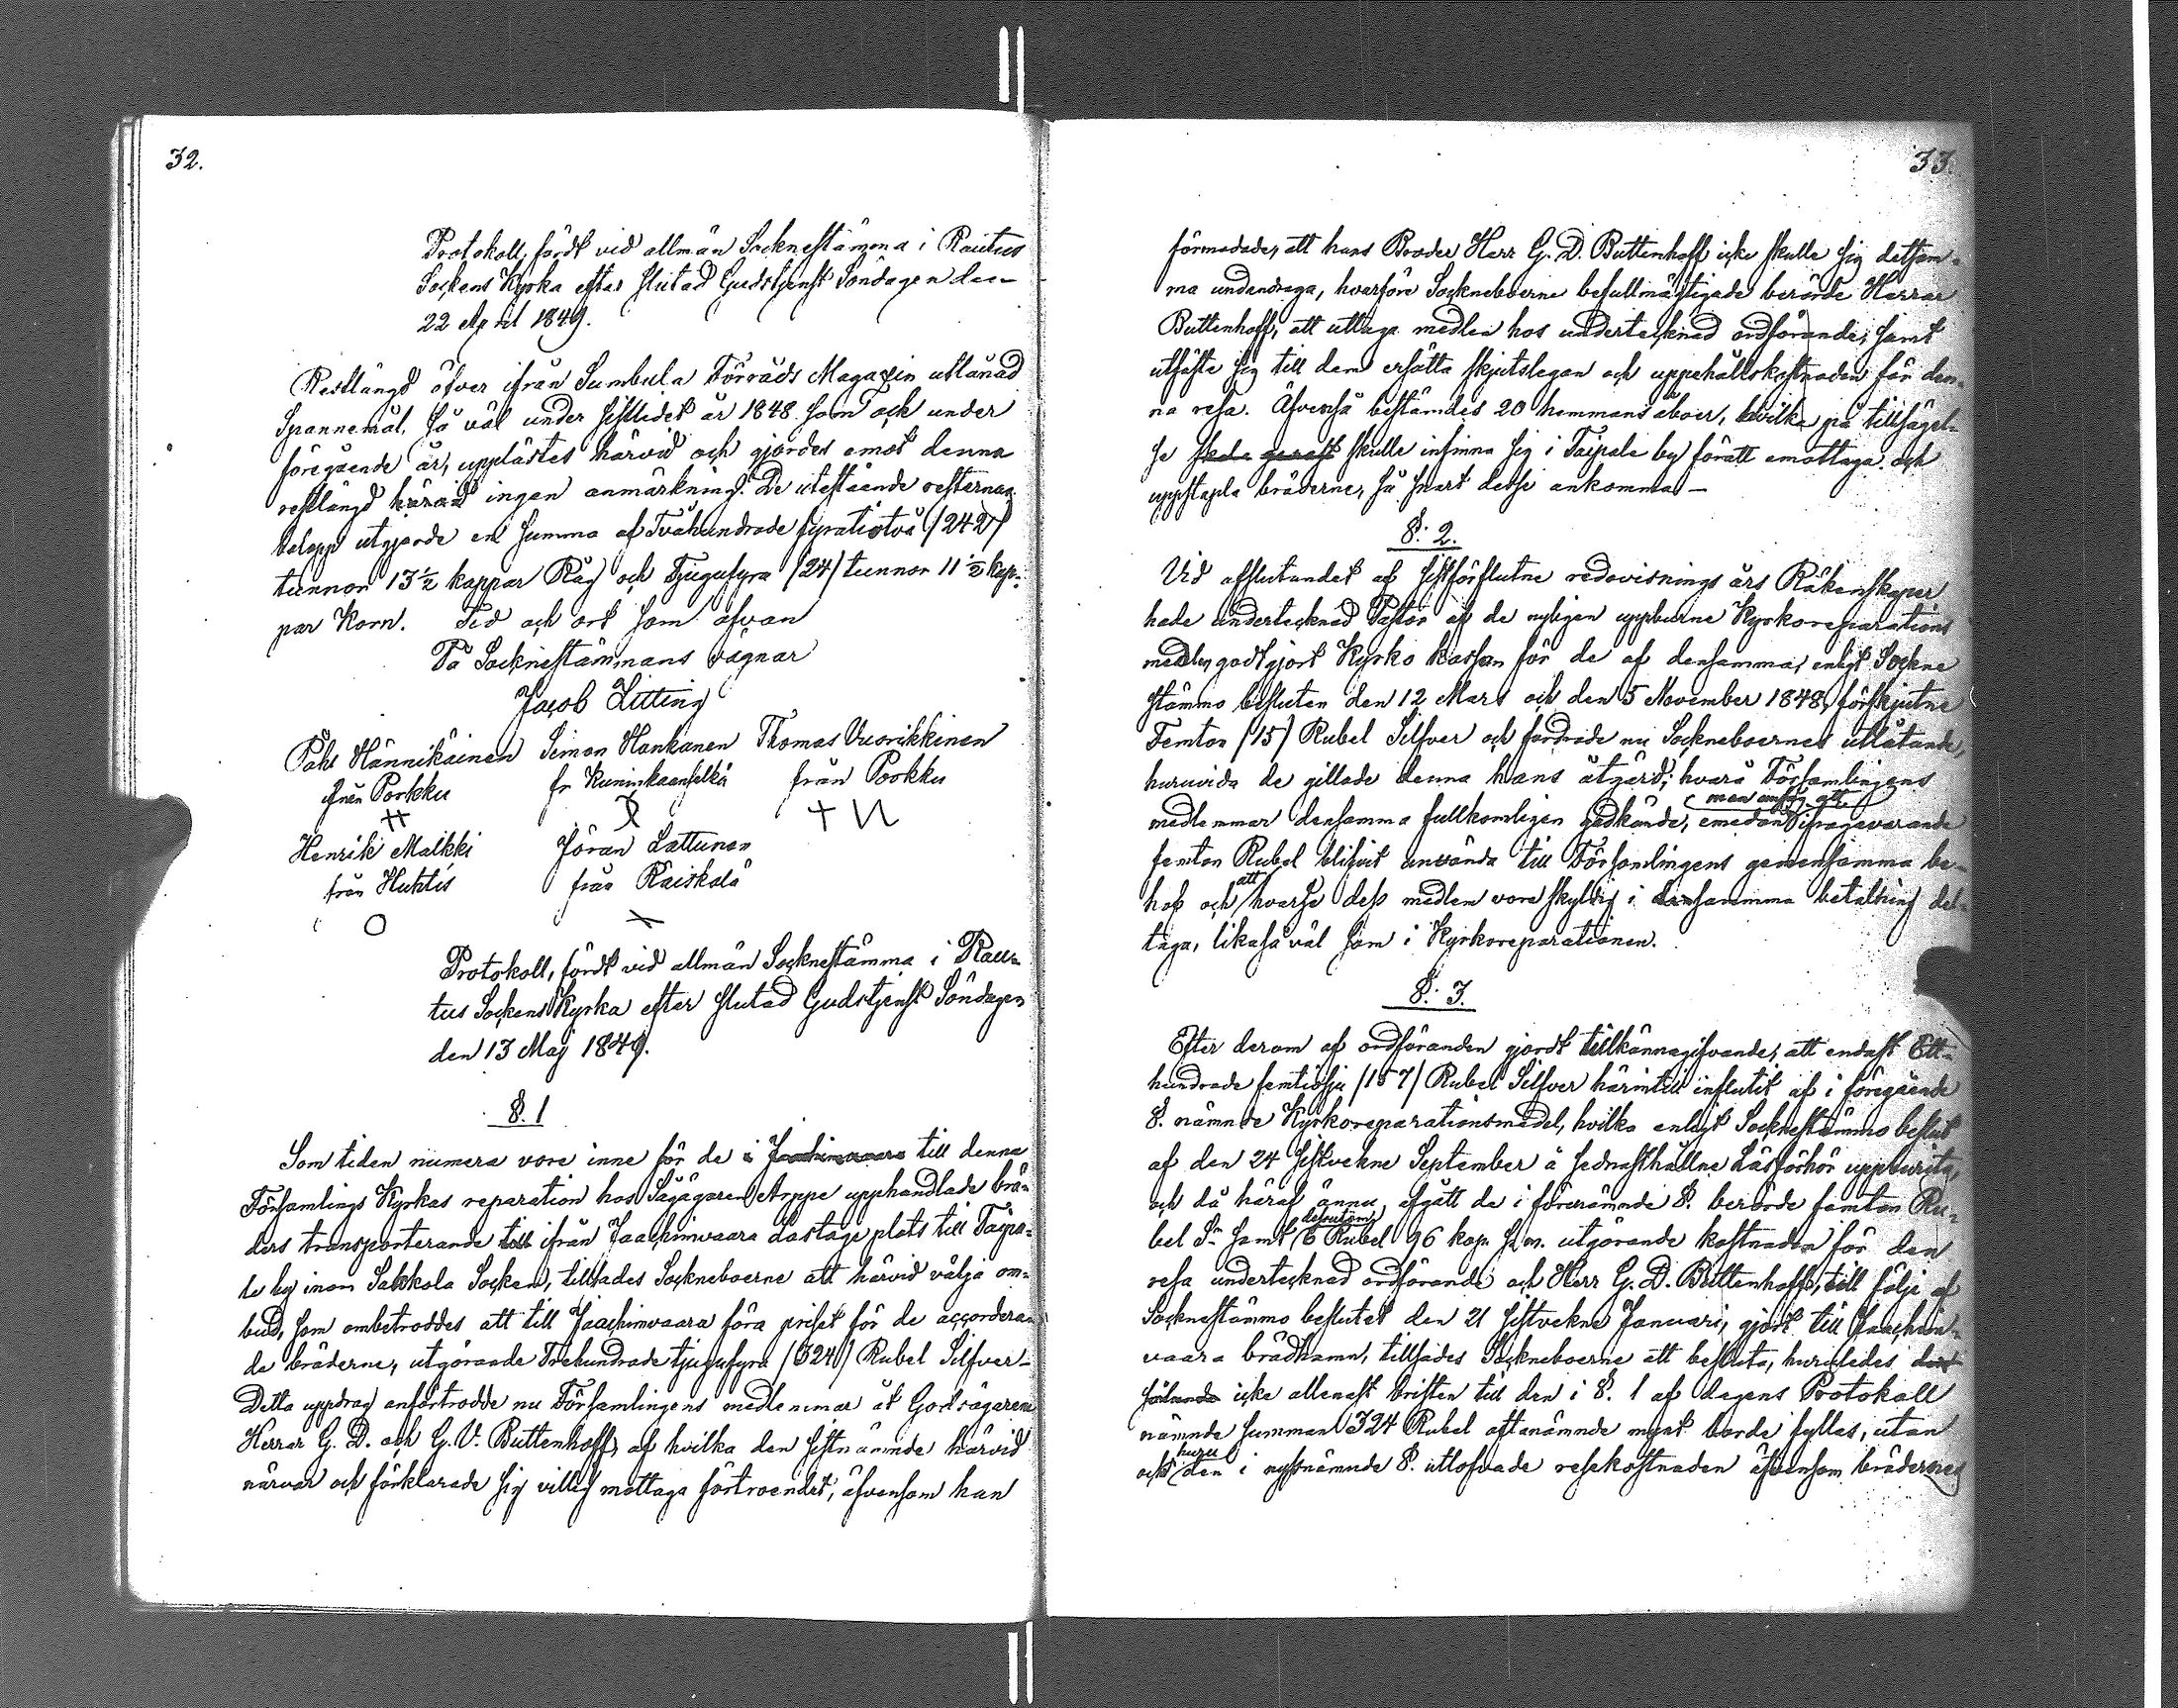 32.
Protokoll, fördt vid allmän Socknestämma i Rautus
Sockens Kyrka efter slutad Gudstjenst Söndagen den
22 April 1849.
Restlängd öfver ifrån Sumbula Förråds Magaxin utlånad
Spannemål, så väl under sistlidet år 1848 som ock under
föregående år, upplästes härvid och gjordes emot denna
restlängd härvid ingen anmärkning. De utestående resternas
belopp utgjorde en summa af Tvåhundrade fyratiotvå /242/
tunnor 13 1/2 kappar Råg och Tjugufyra /24/ tunnor 11 1/2 kap-
par Korn. Tid och ort som ofvan
På Socknestämmans vägnar
Jacob Litting
Påhl Hännikäinen Simon Hankanen Thomas Vuorikkinen
ifrån Porkku fr Kuninkaanselkä från Porkku
Henrik Malkki Jöran Lattunen
från Huhtis från Räiskälä
Protokoll, fördt vid allmän Socknestämma i Rau-
tus Sockens Kyrka efter slutad Gudstjenst Söndagen
den 13 Maj 1849.
§. 1
Som tiden numera vore inne för de i Joachimvaara till denna
Församlings Kyrkas reparation hos Sågägaren Arppe upphandlade brä-
ders transporterande till ifrån Jaachimvaara Lastage plats till Taipa-
le by inom Sakkola Socken, tillsades Sockneboerne att härvid välja om-
bud, som ombetroddes att till Jaachimvaara föra priset för de accordera-
de bräderne, utgörande Trehundrade tjugufyra /324/ Rubel Silfver-
Detta uppdrag anförtrodde nu Församlingens medlemmar åt Godsägarene
Herrar G. D. och G. V. Buttenhoff, af hvilka den sistnämnde härvid
närvar och förklarade sig villig mottaga förtroendet, äfvensom han
33.
förmodade, att hans Broder Herr G. D. Buttenhoff icke skulle sig detsam-
ma undandraga, hvarföre Sockneboerne befullmägtigade berörde Herrar
Buttenhoff, att uttaga medlen hos undertecknad ordförande, samt
utfäste sig till dem ersätta skjutslegan och uppehållskostnaden för den-
na resa. Äfvenså bestämdes 20 hemmans åboer, hvilka på tillsägel-
se skulle infinna sig i Taipale by föratt emottaga och
uppstapla bräderne, så snart desse ankomma-
§. 2.
Vid afslutandet af sistförflutne redovisnings års Räkenskaper
hade undertecknad Pastor af de nyligen uppburne Kyrkoreparations
medlen godtgjort Kyrko Kassan för de af densamma, enligt Sockne
stämmo besluten den 12 Mars och den 5 November 1848, förskjutne
Femton /15/ Rubel Silfver och fordrade nu Sockneboernes utlåtande,
huruvida de gillade denna hans åtgärd; hvarå Församlingens
man ansåg att
medlemmar densamma fullkomligen godkände, emedan ifrågavarande
femton Rubel blifvit använda till Församlingens gemensamma be-
hof och att hvarje dess medlem vore skyldig i densamma betalning del-
taga, likaså väl som i Kyrkoreparationen.
§. 3.
Efter derom af ordföranden gjordt tillkännagifvande, att endast Ett-
hundrade femtiosju /157/ Rubel Silfver härintill influtit af i föregående
§. nämnde Kyrkoreparationsmedel, hvilka enligt Socknestämmo beslut
af den 24 sistvekne September å sednasthållne Läsförhör uppburits,
och då häraf ännu afgått de i förenämnde §. berörde femton Ru-
dessutom
bel Sr samt 6 Rubel 96 kop. s.m. utgörande kostnaden för den
resa undertecknad ordförande och Herr G. D. Buttenhoff, till följe af
Socknestämmo beslutet den 21 sistvekne Januari, gjort till Jaachim-
vaara brädhamn, tillsades Sockneboerne att besluta, huruledes
icke allenast bristen till den i §. 1 af dagens Protokoll
nämnde summan 324 Rubel oftanämnde mynt borde fyllas, utan
huru
ock den i nyssnämnde §. utlofvade resekostnaden äfvensom brädernes